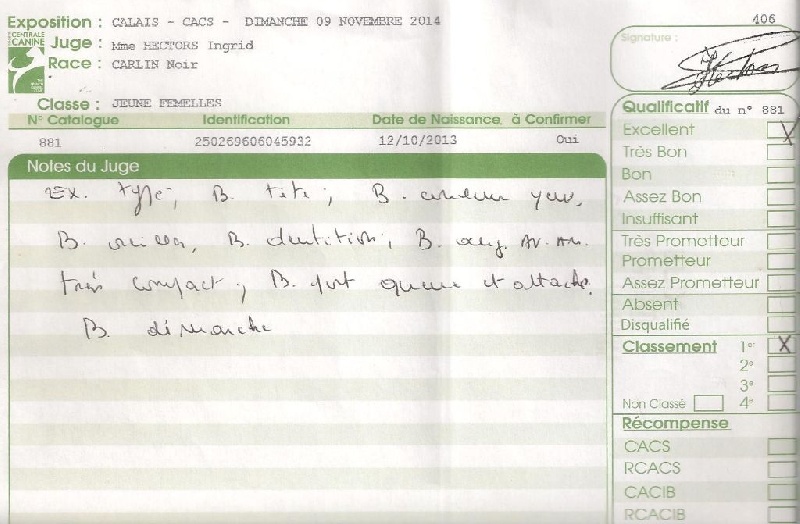 Exposition : CALAIS - CACS - DIMANCHE 09 NOVEMBRE 2014
406
CENTRALE CANINE
Juge : Mme HECTORS Ingrid
Signature :
Race : CARLIN Noir
Classe : JEUNE FEMELLES
N° Catalogue Identification Date de Naissance à Confirmer
881 250269606045932 12/10/2013 Oui
Notes du Juge
Ex. type, B. tête, B. couleur yeux,
B. oreilles, B. dentition, B. ang. AV. AR.
très compact, B. port queue et attache.
B. démarche
Qualificatif du n° 881
Excellent X
Très Bon
Bon
Assez Bon
Insuffisant
Très Prometteur
Prometteur
Assez Prometteur
Absent
Disqualifié
Classement 1er X
2e
3e
Non Classé 4e
Récompense
CACS
RCACS
CACIB
RCACIB